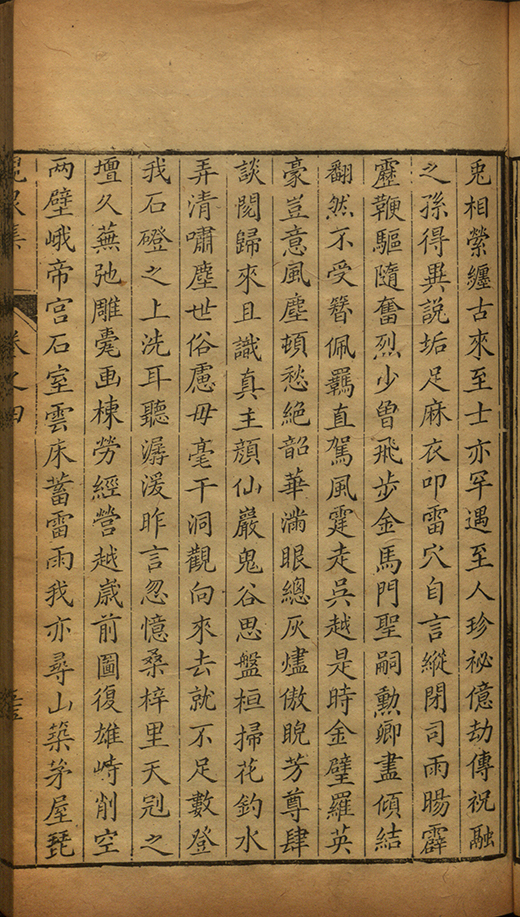 兎相縈纏古來至士亦罕遇至人珍祕億劫傳祝融
之孫得異說垢足麻衣叩雷穴自言縱閉司雨暘霹
靂鞭驅隨奮烈少曾飛步金馬門聖嗣勲卿盡傾結
翻然不受簪佩羈直駕風霆走吳越是時金壁羅英
豪豈意風塵頓愁絕韶華滿眼總灰燼傲睨芳尊肆
談閱歸來且識真主顏仙巖鬼谷思盤桓掃花釣水
弄清嘯塵世俗慮毋毫干洞觀向來去就不足數登
我石磴之上洗耳聽潺湲昨言忽憶桑梓里天冠之
壇久蕪弛雕甍画棟勞經營越歲前圖復雄峙削空
两壁峨帝宫石室雲床蓄雷雨我亦尋山築茅屋琵
卷之四